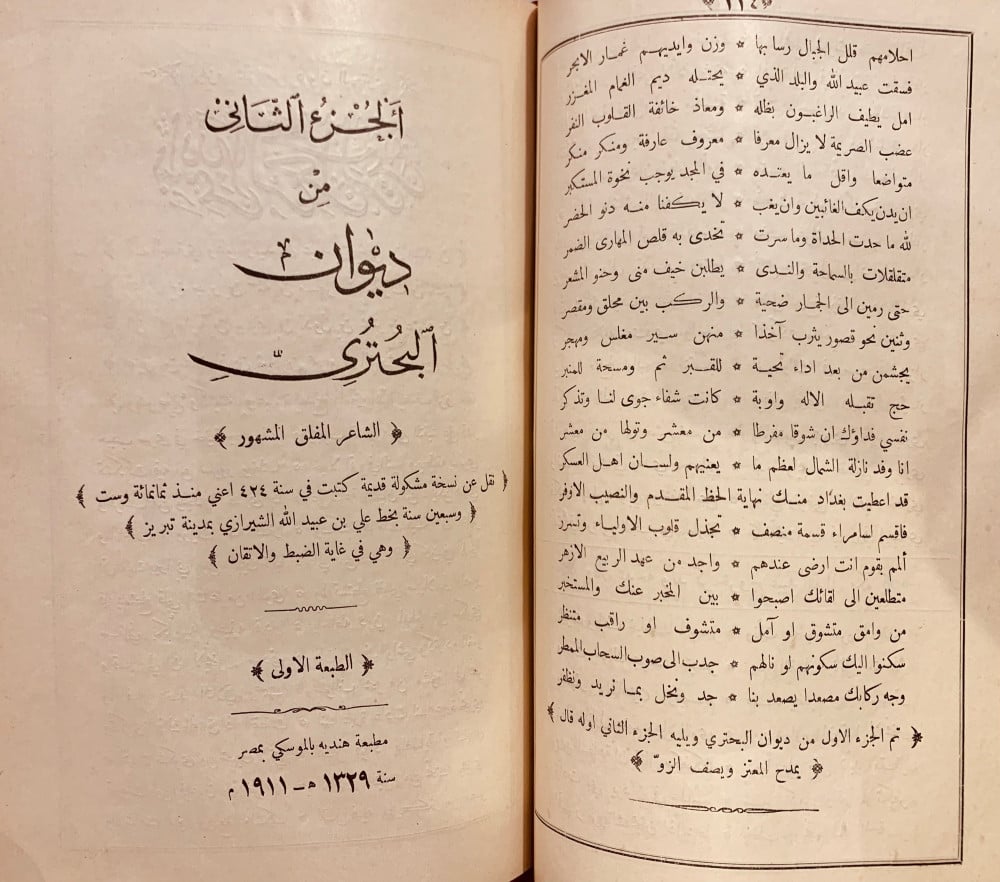 ٢٢٤
احلامهم قلل الجبال رسا بها * وزن وايديهم غمار الابحر
فسقت عبيد الله والبلد الذي * يحتله ديم الغمام المغزر
امل يطيف الراغبون بظله * ومعاذ خائفة القلوب النفر
عضب الصريمة لا يزال معرفا * معروف عارفة ومنكر منكر
متواضعا واقل ما يعتده * في المجد يوجب نخوة المستكبر
ان يدن يكنف الغائبين وان يغب * لا يكفنا منه دنو الحضر
لله ما حدت الحداة وما سرت * تخدى به قلص المهارى الضمر
متقلقلات بالسماحة والندى * يطلبن خيف منى وحنو المشعر
حتى رمين الى الجمار ضحية * والركب بين محلق ومقصر
وثنين نحو قصور يثرب آخذا * منهن سير مغلس ومهجر
يجشمن من بعد اداء تحية * للقبر ثم ومسحة للمنبر
حج تقبله الاله واوبة * كانت شفاء جوى لنا وتذكر
نفسي فداؤك ان شوقا مفرطا * من معشر وتولها من معشر
انا وفد نازلة الشمال لعظم ما * يعنيهم ولسان اهل العسكر
قد اعطيت بغداد منك نهاية الحظ المقدم والنصيب الاوفر
فاقسم لسامراء قسمة منصف * تجذل قلوب الاولياء وتسرر
ألمم بقوم انت ارضى عندهم * واجد من عهد الربيع الازهر
متطلعين الى لقائك اصبحوا * بين المخبر عنك والمستخبر
من وامق متشوق او آمل * متشوف او راقب متنظر
سكنوا اليك سكونهم لو نالهم * جدب الى صوب السحاب الممطر
وجه ركابك مصعدا يصعد بنا * جد ونخل بما نريد ونظفر
﴿ تم الجزء الاول من ديوان البحتري ويليه الجزء الثاني اوله قال ﴾
﴿ يمدح المعتز ويصف الزوّ ﴾
أَلْجُزءُ الثَّانِي
مِنْ
دِيْوَان
البُحْتُرِيّ
﴿ الشاعر المفلق المشهور ﴾
﴿ نقل عن نسخة مشكولة قديمة كتبت في سنة ٤٢٤ اعني منذ ثمانمائة وست ﴾
﴿ وسبعين سنة بخط علي بن عبيد الله الشيرازي بمدينة تبريز ﴾
﴿ وهي في غاية الضبط والاتقان ﴾
﴿ الطبعة الاولى ﴾
مطبعة هنديه بالموسكي بمصر
سنة ١٣٢٩ هـ - ١٩١١ م